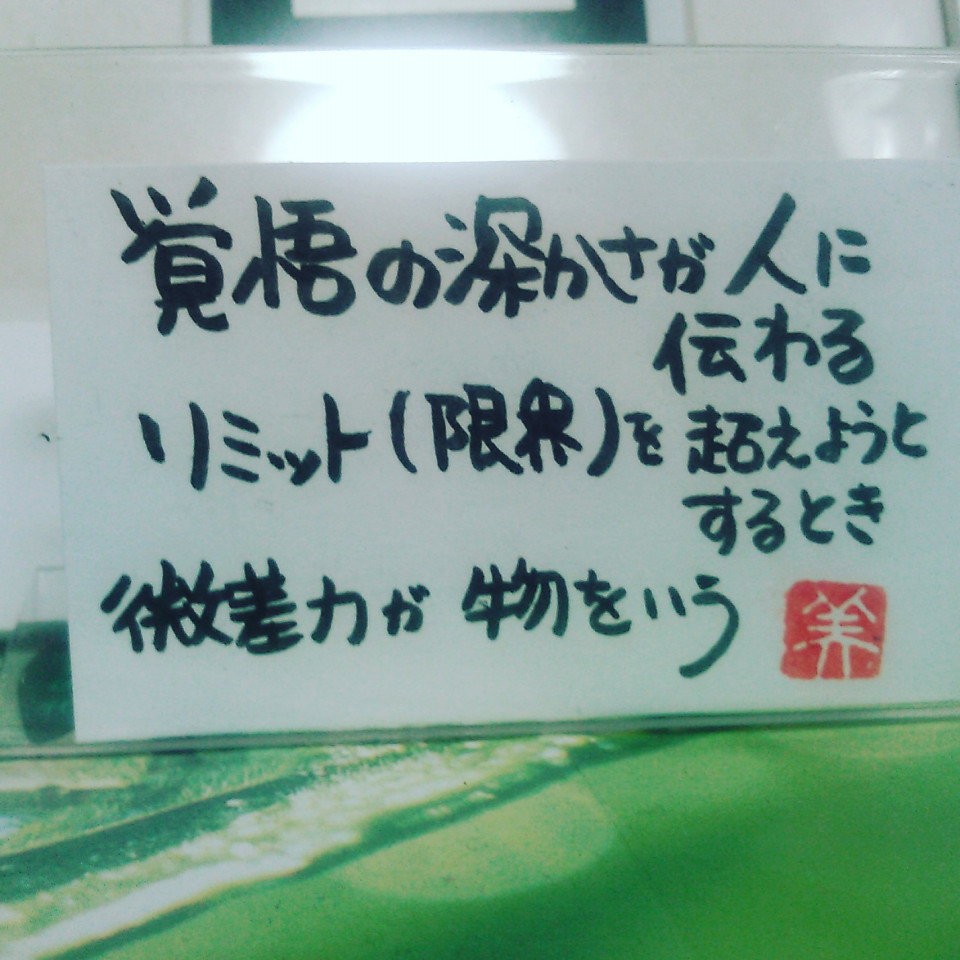 覚悟の深かさが人に
伝わる
リミット(限界)を超えようと
するとき
微差力が物をいう